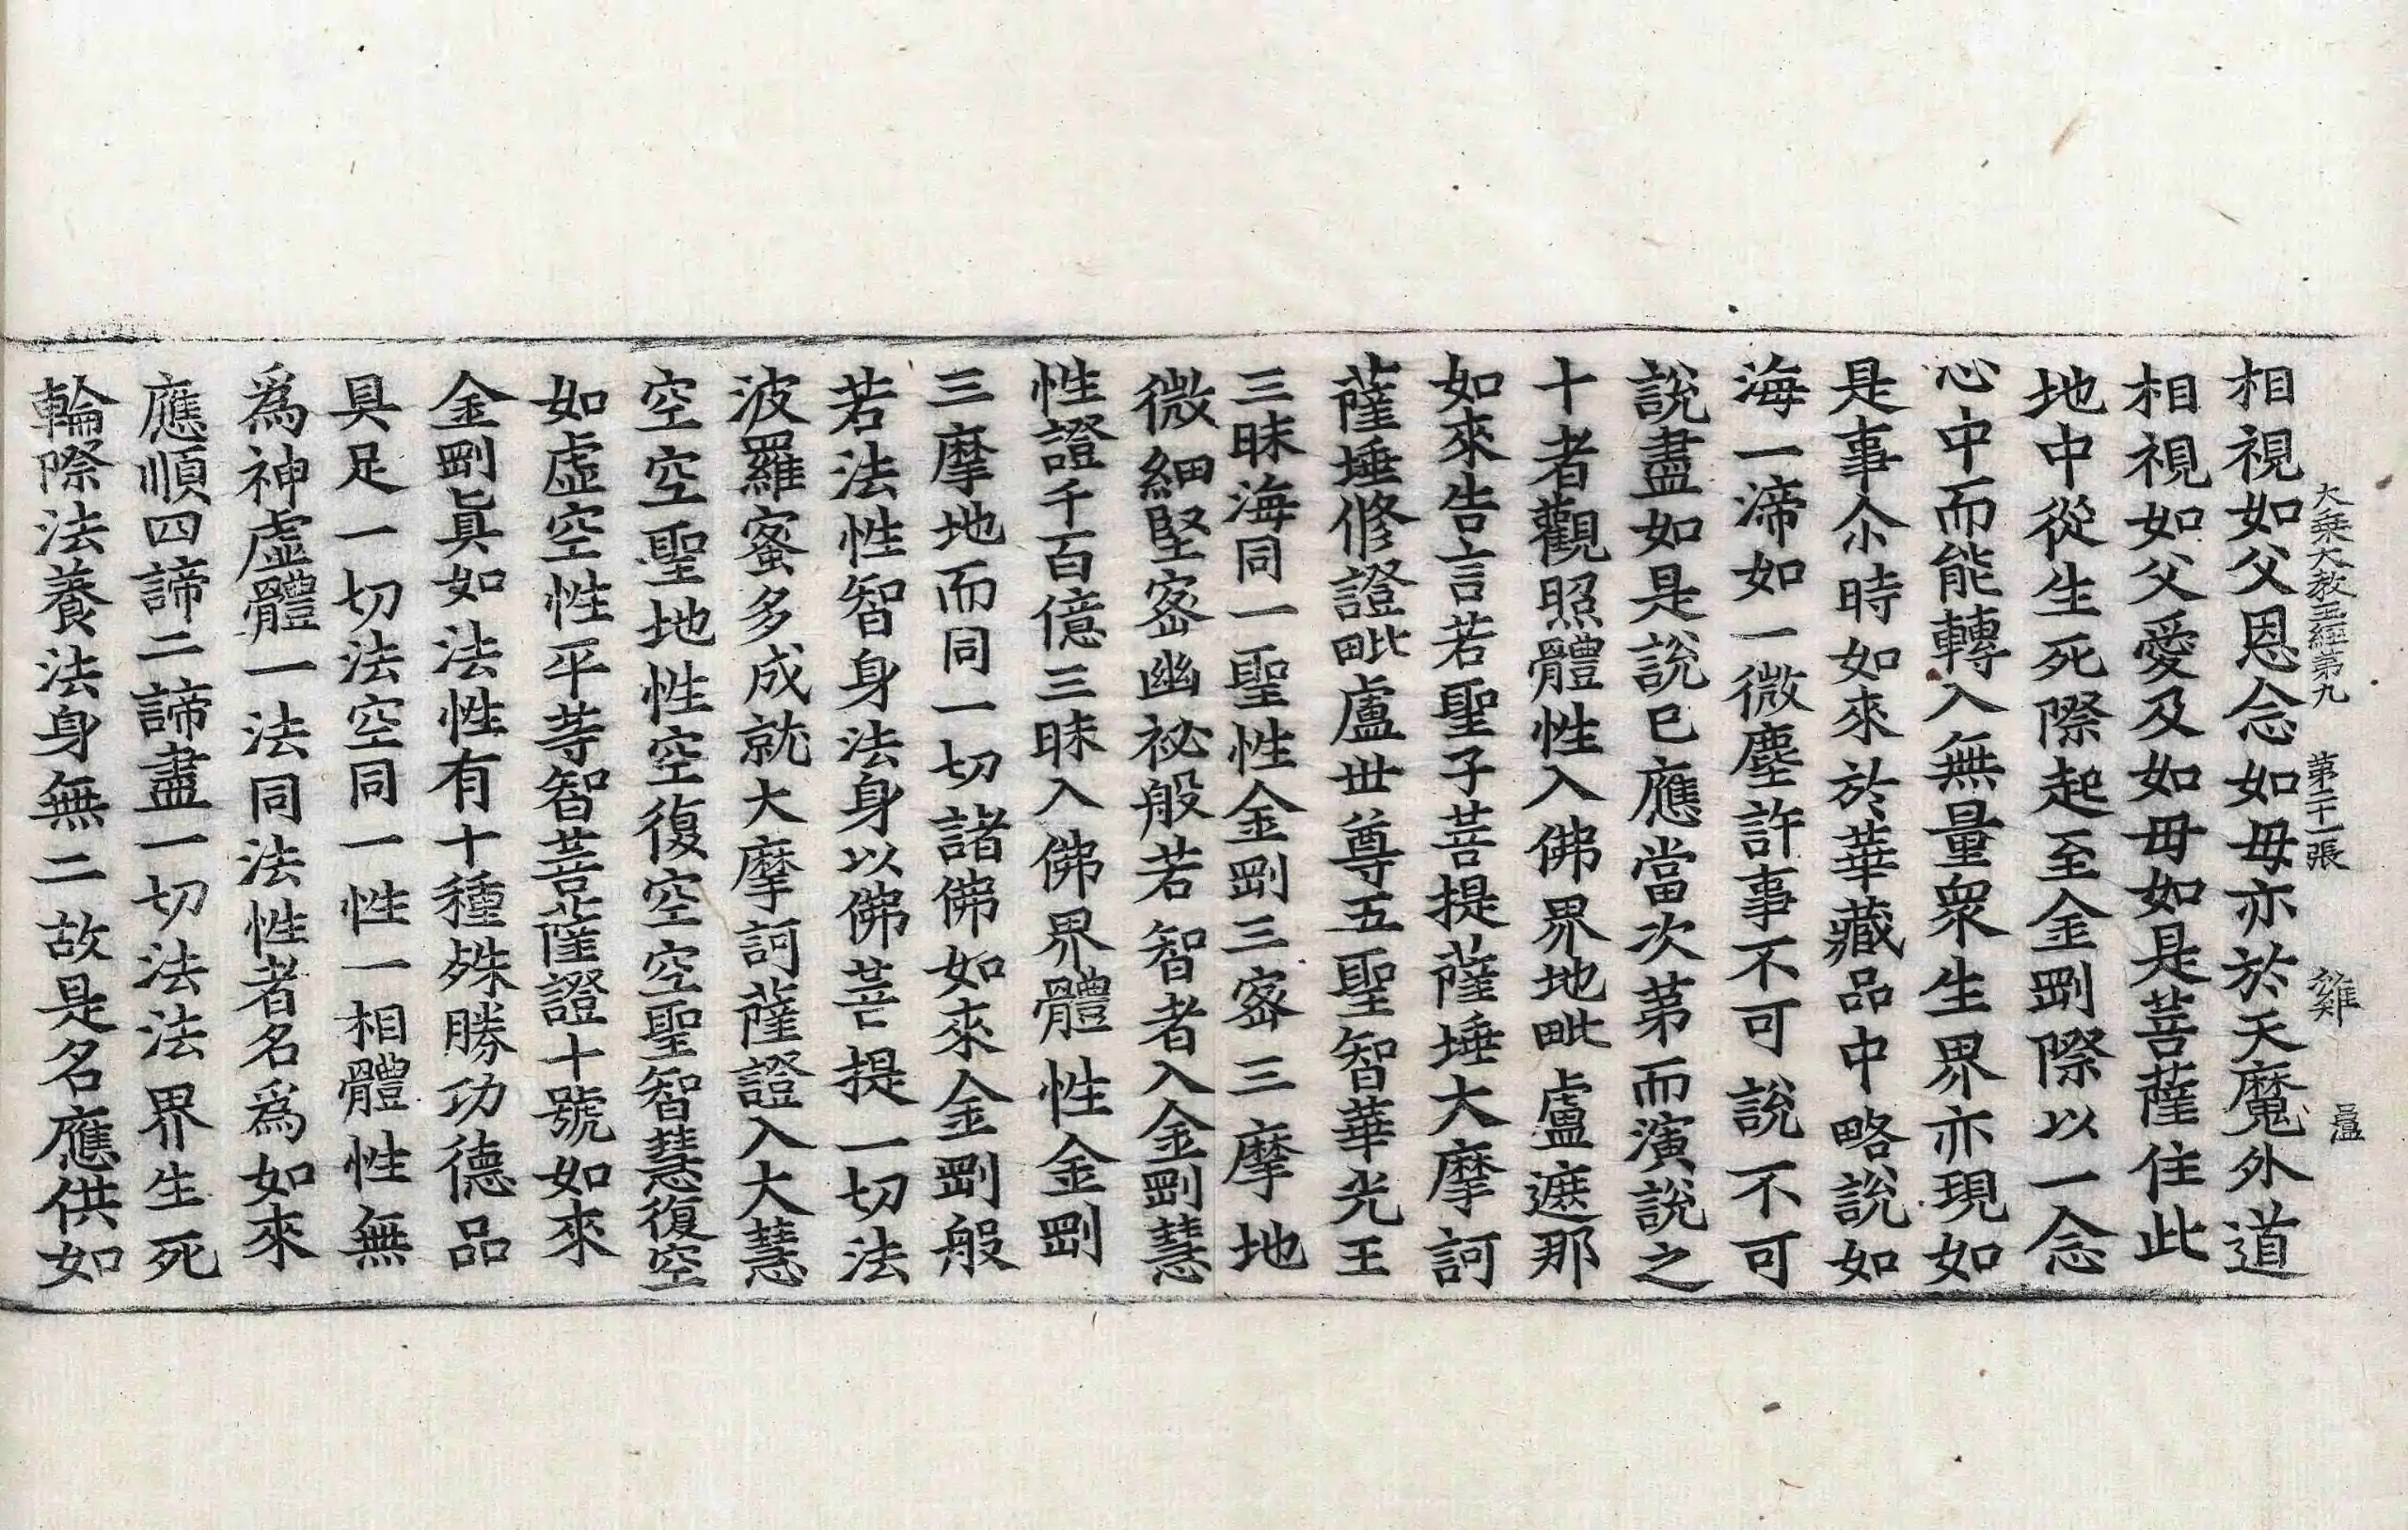 大乘大教王經第九 第二十一張 雞
相視如父恩念如母亦於天魔外道
相視如父愛及如母如是菩薩住此
地中從生死際起至金剛際以一念
心中而能轉入無量衆生界亦現如
是事尒時如來於華藏品中略說如
海一渧如一微塵許事不可說不可
說盡如是說已應當次第而演說之
十者觀照體性入佛界地毗盧遮那
如來告言若聖子菩提薩埵大摩訶
薩埵修證毗盧世尊五聖智華光王
三昧海同一聖性金剛三密三摩地
微細堅密幽祕般若智者入金剛慧
性證千百億三昧入佛界體性金剛
三摩地而同一切諸佛如來金剛般
若法性智身法身以佛菩提一切法
波羅蜜多成就大摩訶薩證入大慧
空空聖地性空復空空聖智慧復空
如虛空性平等智菩薩證十號如來
金剛眞如法性有十種殊勝功德品
具足一切法空同一性一相體性無
爲神虛體一法同法性者名爲如來
應順四諦二諦盡一切法法界生死
輪際法養法身無二故是名應供如